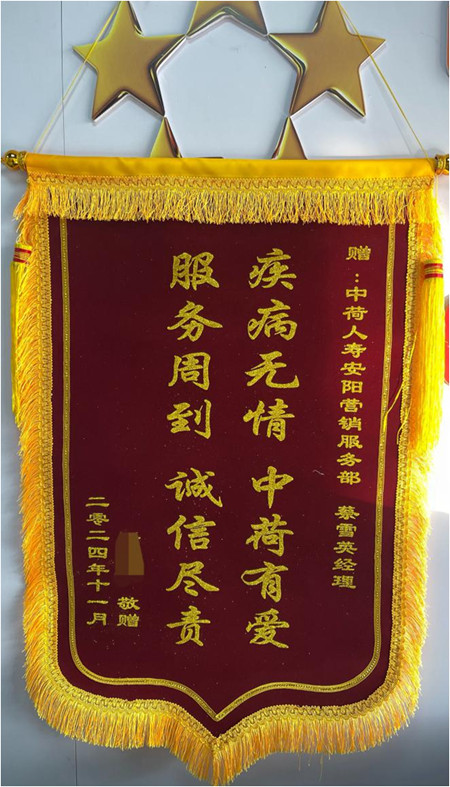 赠：中荷人寿安阳营销服务部 蔡雪英经理
疾病无情 中荷有爱
服务周到 诚信尽责
敬赠
二零二四年十一月